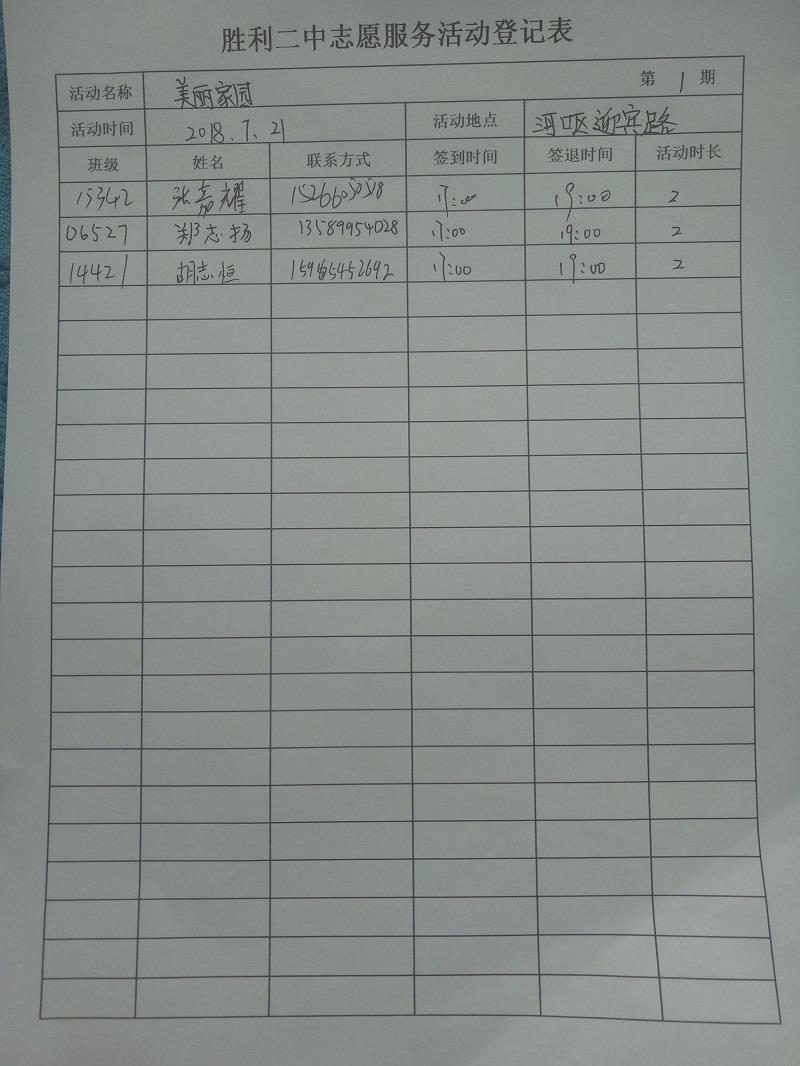 胜利二中志愿服务活动登记表
活动名称 美丽家园 第 1 期
活动时间 2018.7.21 活动地点 河口区迎宾路
班级 姓名 联系方式 签到时间 签退时间 活动时长
15342 张嘉耀 15266050518 17:00 19:00 2
06527 郑志扬 13589954028 17:00 19:00 2
14421 胡志恒 17:00 19:00 2